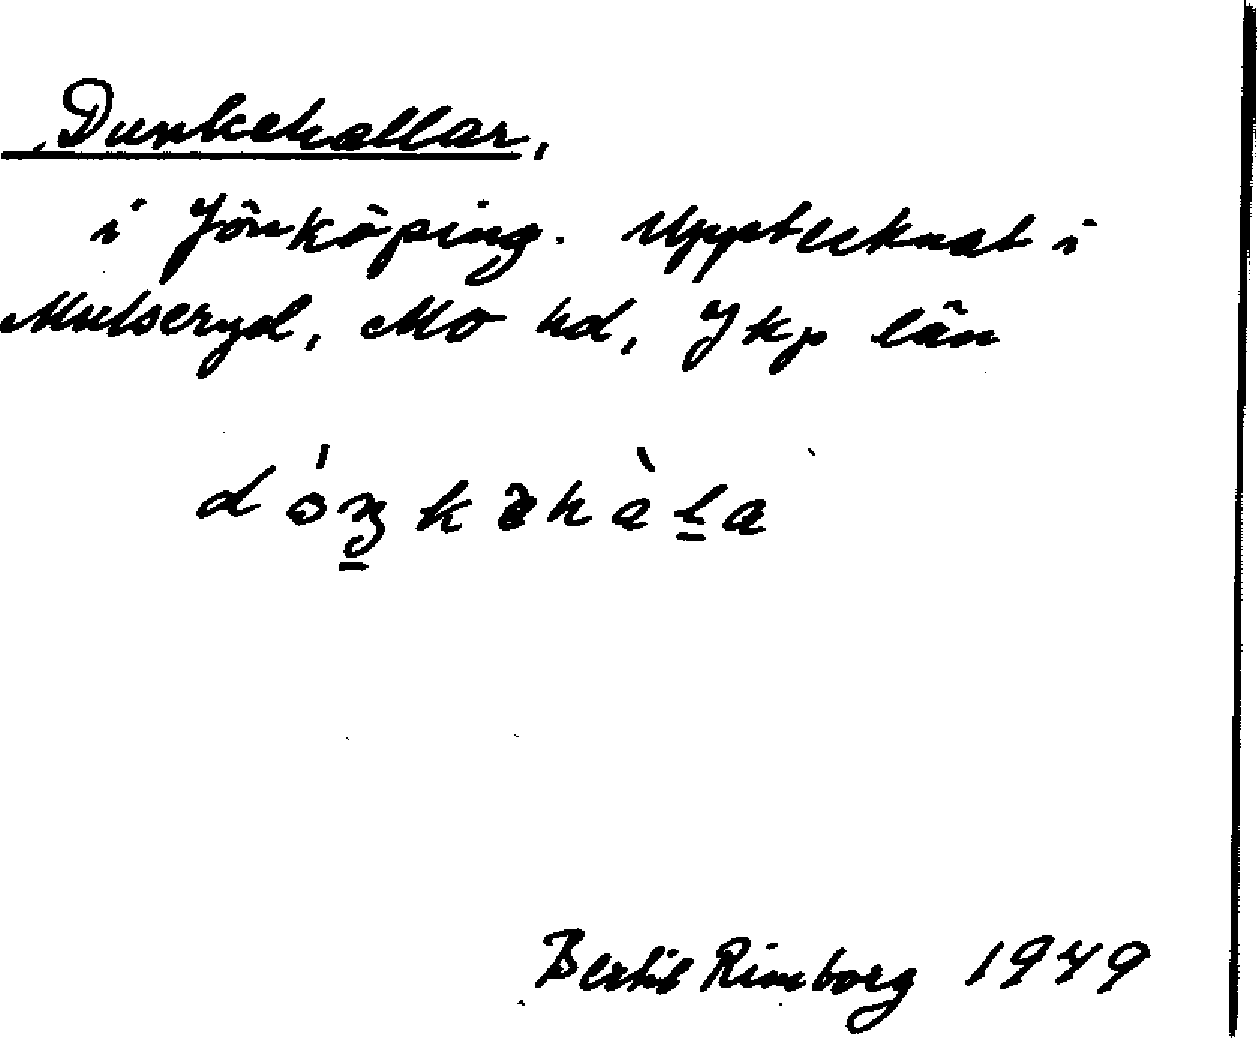 Dunkehallar,
i Jönköping. Upptecknat i
Mulseryd, Mo hd, Jkp län
Bertil Rimborg 1949